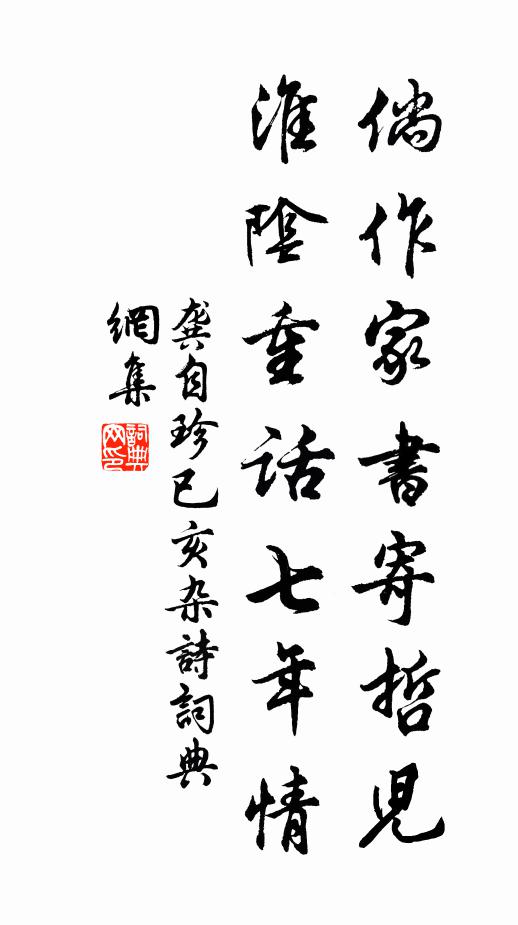 倘作家書寄哲兄
淮陰重話七年情
龔自珍己亥杂詩詞典
網集
詞典網印